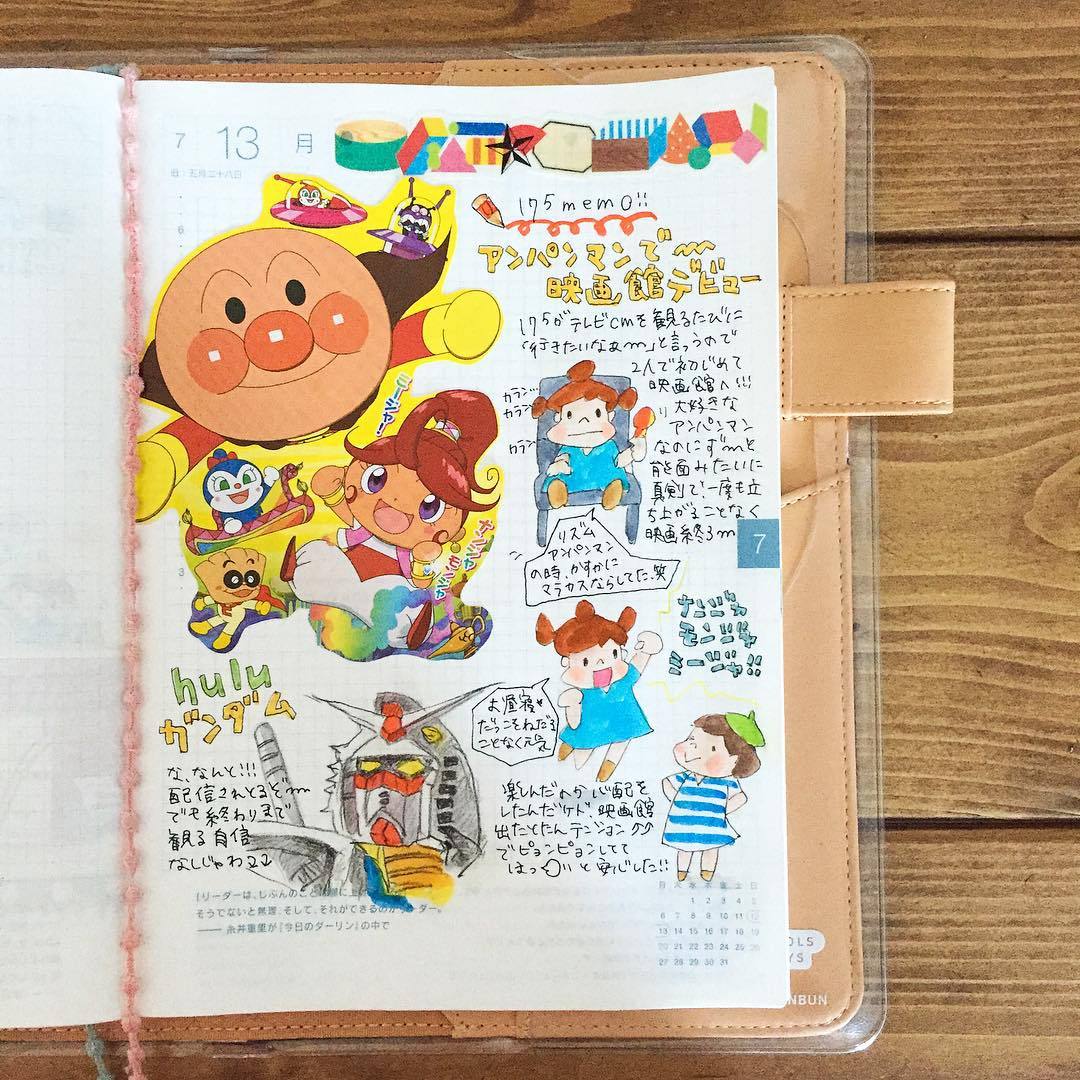 7 13 月
旧:五月二十八日
6
3
ミージャ!
ナンジャ
モンジャ
175memo!!
アンパンマンで
映画館デビュー
175がテレビcmを観るたびに
「行きたいなぁ〰」と言うので
2人で初めて
映画館へ!!!
大好きな
アンパンマン
なのにず〰と
能面みたいに
真剣で、一度も立
ち上がることなく
映画終る〰
カラン
カラン
カラン
リズム
アンパンマン
の時、かすかに
マラカスならしてた。笑
7
ナンジャ
モンジャ
ミージャ!!
お昼寝も
だっこもねだる
ことなく元気
楽しんだのか心配を
したんだケド、映画館
出たとたんテンション↗↗
でピョンピョンしてて
ほっと安心した!!
hulu
ガンダム
な、なんと!!!
配信されとるぞ〰
でも終わりまで
観る自信
なしじゃわ
リーダーは、じぶんのこと
そうでないと無理。そして、それができるのが
—— 糸井重里が『今日のダーリン』の中で
月 火 水 木 金 土 日
1 2 3 4 5
6 7 8 9 10 11 12
13 14 15 16 17 18 19
20 21 22 23 24 25 26
27 28 29 30 31
OLS
YS
NBUN